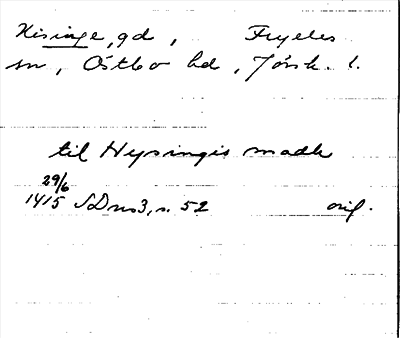 Hisinge, gd, Fryeles
sn, Östbo hd, Jönk. l.
til Hysingis madh
29/6
1415 SDns3, s. 52 orig.